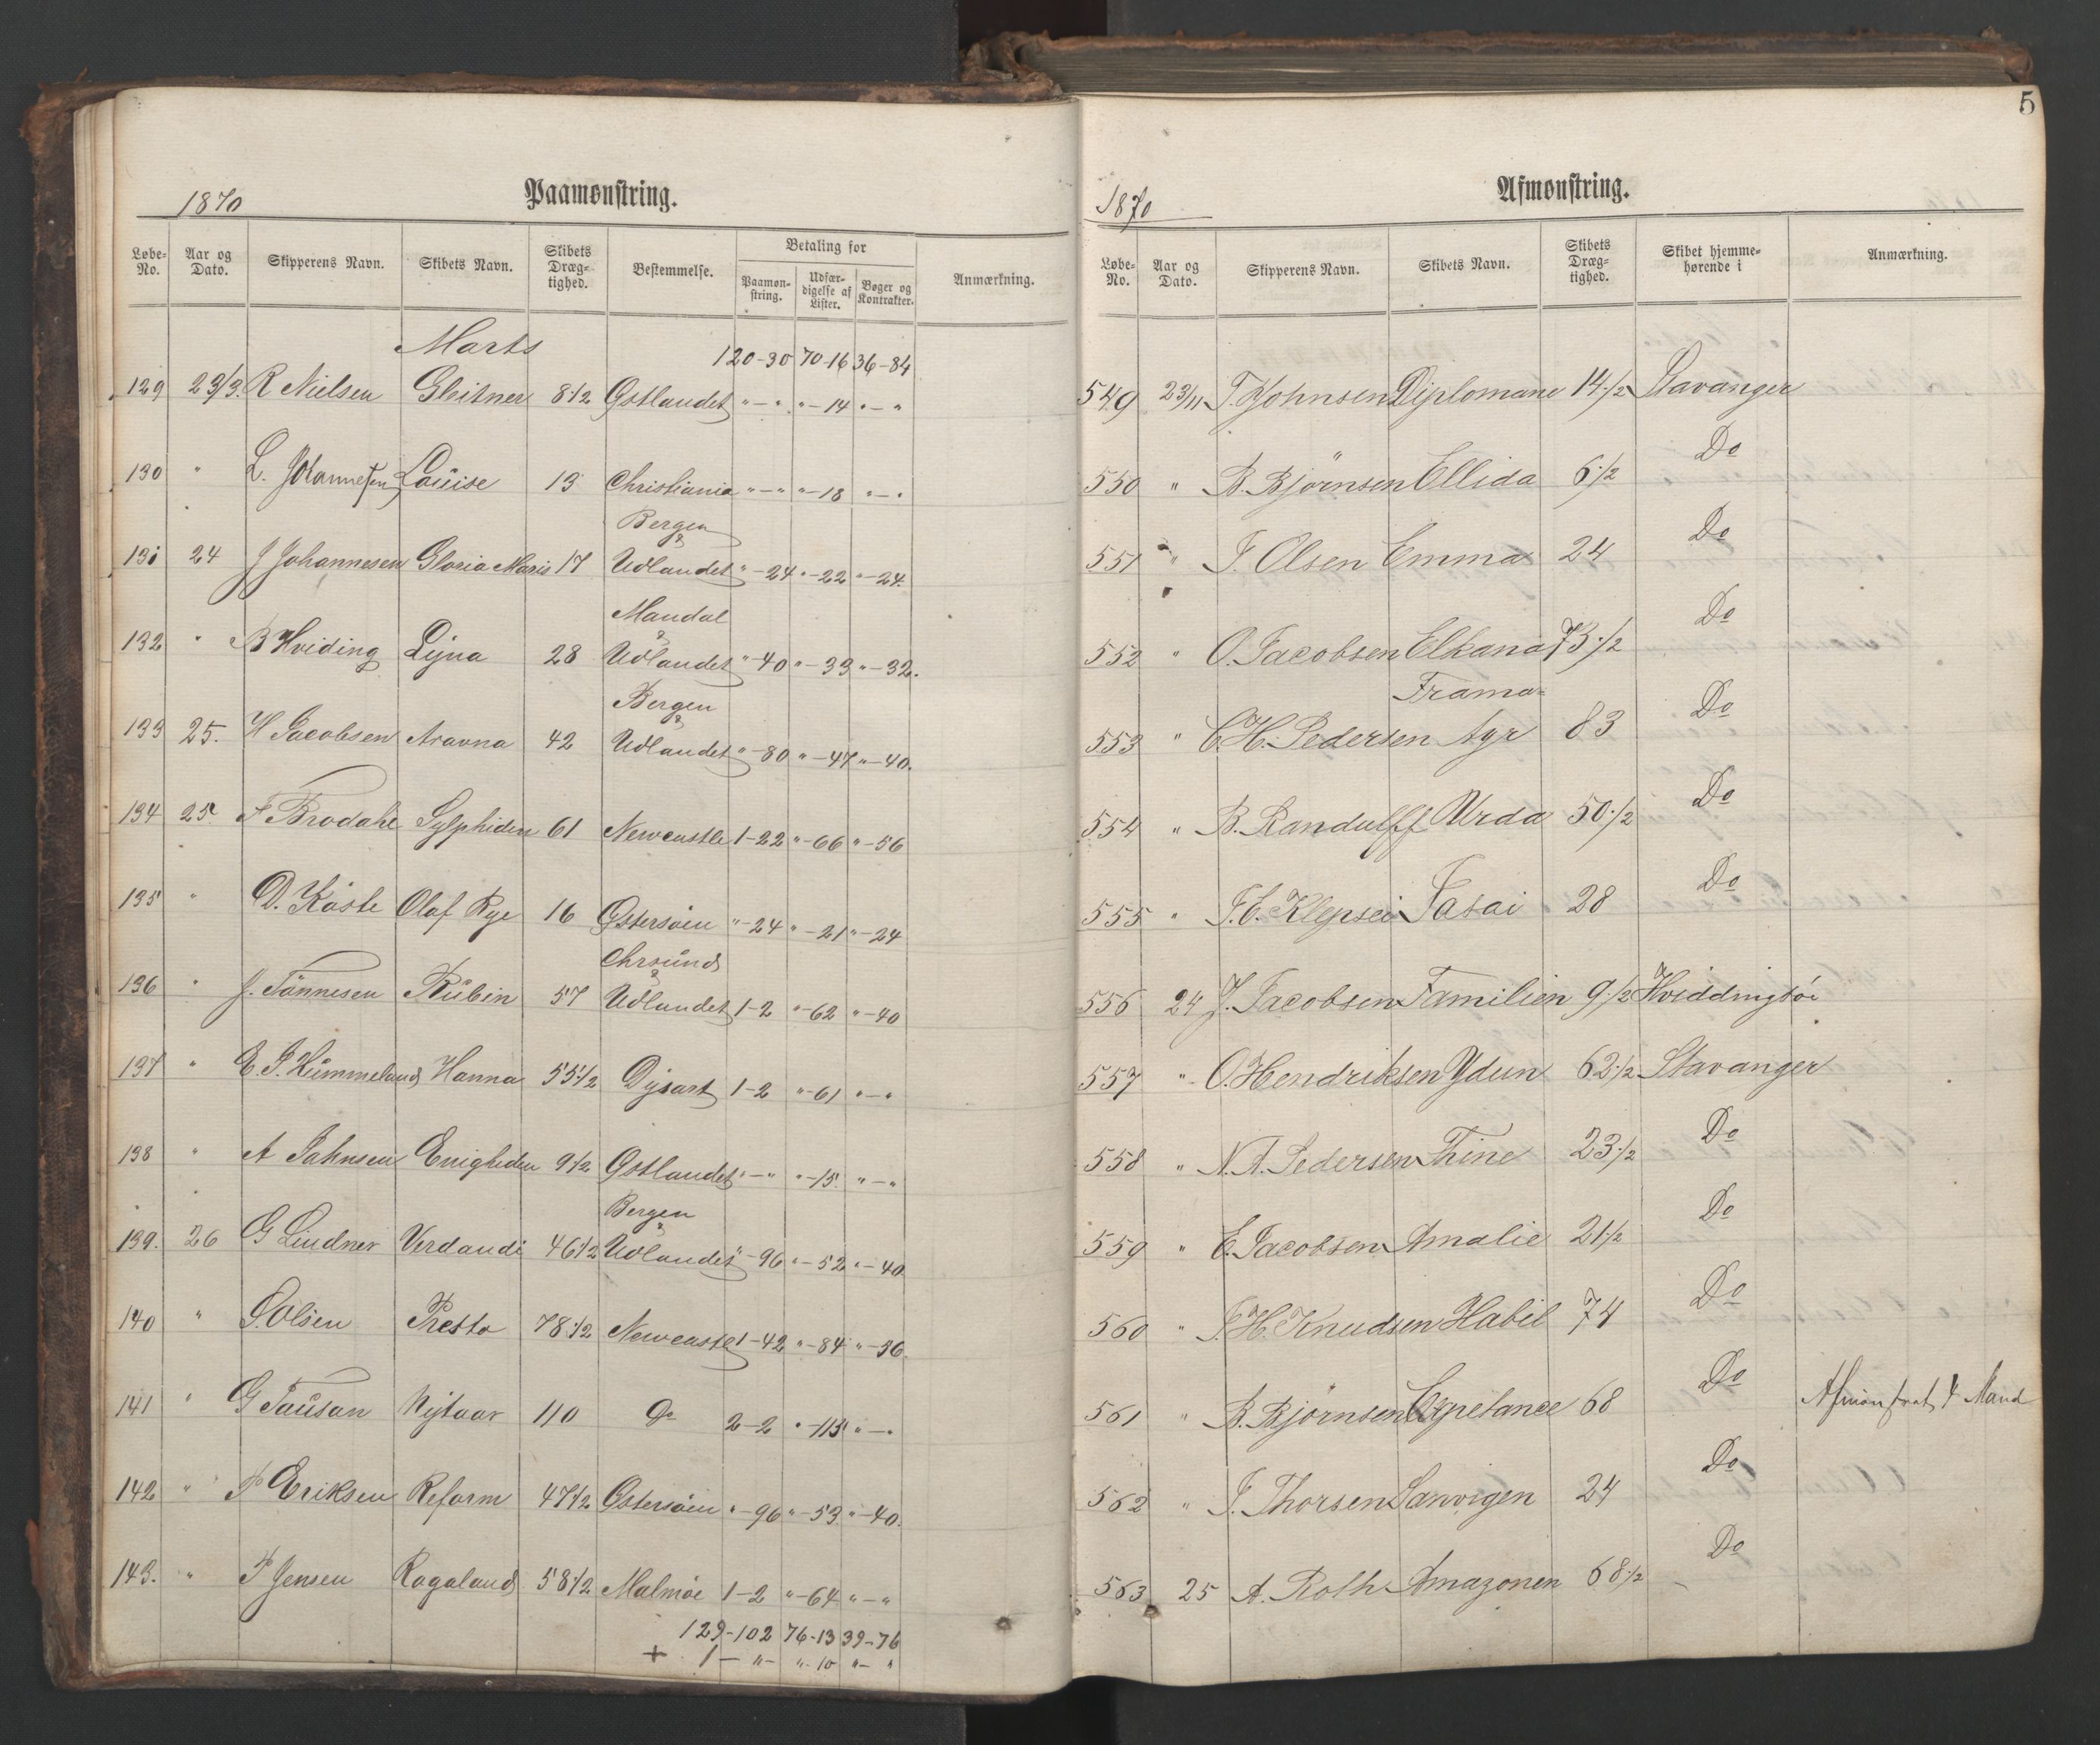 5
1870
Paamønstring.
Løbe-No. Aar og Dato. Skipperens Navn. Skibets Navn. Skibets Dræg-tighed. Bestemmelse. Betaling for Anmærkning.
Paamøn-string. Udfær-digelse af Lister. Bøger og Kontrakter.
Marts 120-30 70-16 36-84
129 23/3. R Nielsen Gleitner 8 1/2 Østlandet "-" "-14 "-"
130 " L. Johannesen Louise 13 Christiania "-" "-18 "-"
Bergen &
131 24 J Johannesen Gloria Maris 17 Udlandet "-24 "-22 "-24.
Mandal &
132 " B Hviding Lyna 28 Udlandet "-40 "-33 "-32.
Bergen &
133 25. H Jacobsen Aravna 42 Udlandet "-80 "-47 "-40.
134 25. F Brodahl Sylphiden 61 Newcastle 1-22 "-66 "-56
135 " D. Kaste Olaf Rye 16 Østersøen "-24 "-21 "-24
Chrsund &
136 " J. Tönnesen Rubin 57 Udlandet 1-2 "-62 "-40
137 " E. G. Hummeland Hanna 55 1/2 Dysart 1-2 "-61 "-"
138 " A Johnsen Enigheden 9 1/2 Østlandet "-" "-15 "-"
Bergen &
139. 26 G Lindner Verdandi 46 1/2 Udlandet "-96 "-52 "-40
140 " S. Olsen Presto 78 1/2 Newcastle 1-42 "-84 "-36.
141 " G Tausan Nytaar 110 Do 2-2 "-115 "-"
142 " P Eriksen Reform 47 1/2 Østersøen "-96 "-53 "-40.
143. " P Jensen Rogaland 58 1/2 Malmöe 1-2 "-64 "-"
129-102 76-13 39-76
+ 1-"- "-10 "-"
1870
Afmønstring.
Løbe-No. Aar og Dato. Skipperens Navn. Skibets Navn. Skibets Dræg-tighed. Skibet hjemme-hørende i Anmærkning.
549 23/11 Johnsen Diplomane 14 1/2 Stavanger
550 " B. Bjørnsen Ellida 6 1/2 Do
551 " T. Olsen Emma 24 Do
552 " O. Jacobsen Elkana 73 1/2 Do
Frama-
553 " C. H. Pedersen Ayr 83 Do
554 " B. Randulff Urda 50 1/2 Do
555 " Klepsei 28 Do
556 24 J. Jacobsen Familien 9 1/2 Hviddingsöe
557 " O. Hendriksen Ydun 62 1/2 Stavanger
558 " N. A. Pedersen Thine 23 1/2 Do
559 " E. Jacobsen Amalie 21 1/2 Do
560 " T. H. Knudsen Habil 74 Do
561 " B. Bjørnsen Espetance 68 Do Afmönstret Mand
562 " T. Thorsen Sanvigen 24 Do
563 25 A. Roth Amazonen 68 1/2 Do